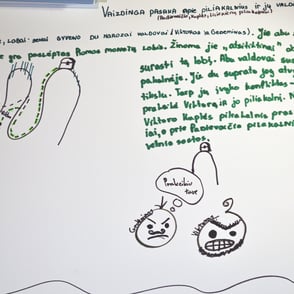 Vaizdinga pasaka apie piliakalnius ir jų valdo
(Padievaičio, Kaplės, piliakalniai)
, Lobai- senai gyveno du valdovai (Viktoras ir Gediminas). Jie abu
yra paslėptas Romos monetų lobis. Žinoma jie „atsitiktinai" ob
surasti tą lobį. Abu valdovai su
pakalnėje. Jie du suprato jog atv
tikslu. Tarp jų įvyko konfliktas-
prakeikė Viktorą ir jo piliakalnį. N
Viktoro Kaplės piliakalnis pras
iai, o prie Padievaičio piliakaln
velnio sostas.
Prakeikiu
tave
Gediminas
Viktoras